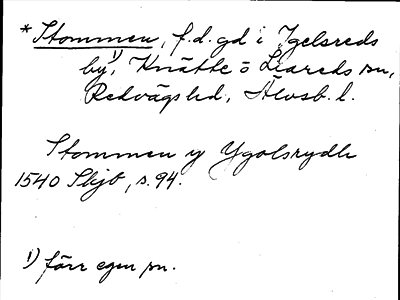 *Stommen, f.d. gd i Igelsreds
by,¹) Knätte o Liareds sn,
Redvägs hd, Älvsb. l.
Stommen y Ygolsrydh
1540 Skjb, s. 94.
¹) förr egen sn.